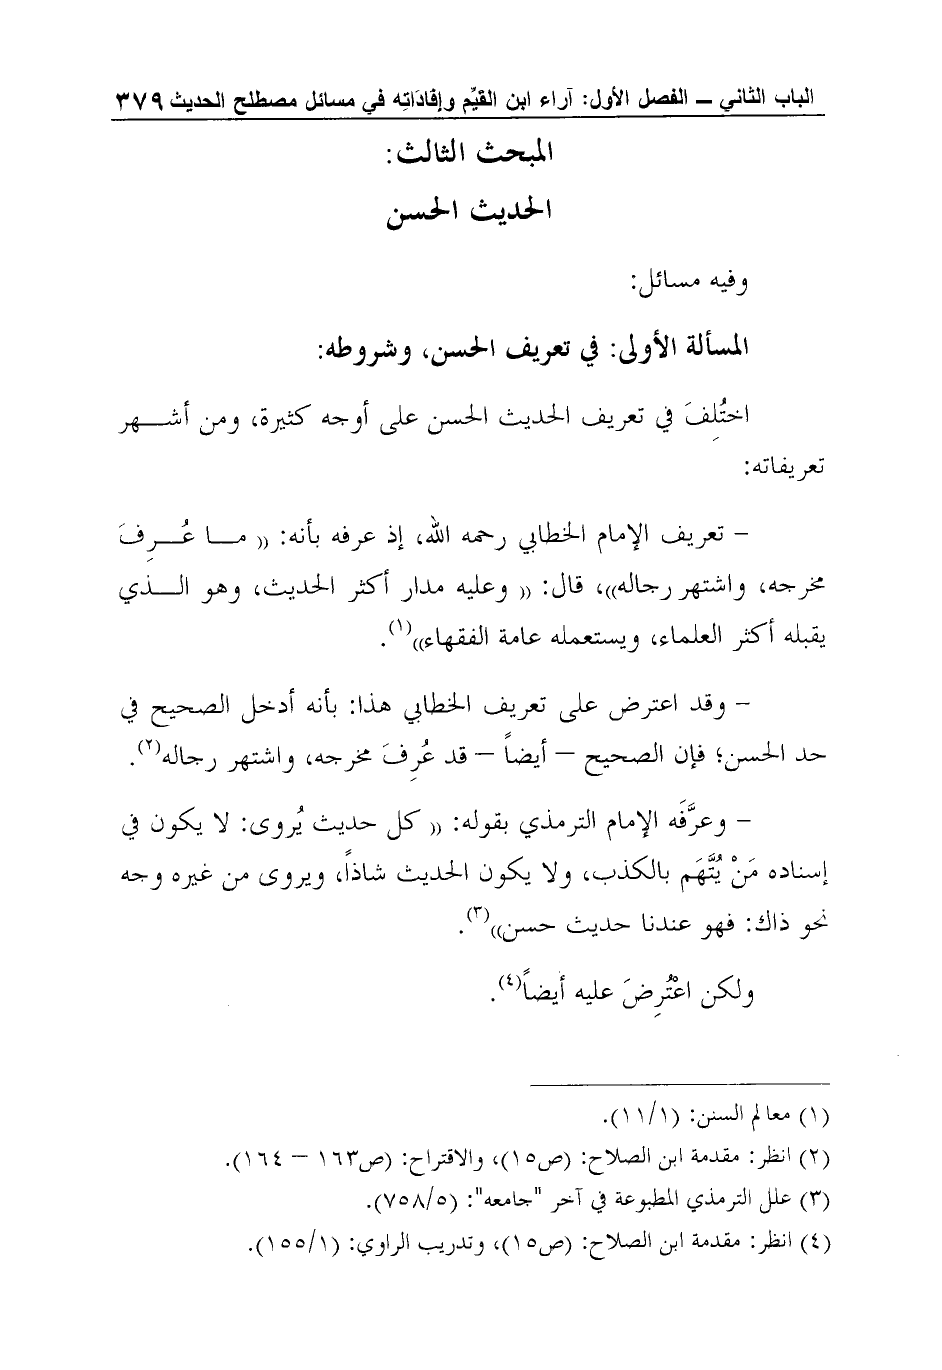 الباب الثاني – الفصل الأول: آراء ابن القيِّم وإفادَاتِه في مسائل مصطلح الحديث ٣٧٩
المبحث الثالث:
الحديث الحسن
وفيه مسائل:
المسألة الأولى: في تعريف الحسن، وشروطه:
اختُلِفَ في تعريف الحديث الحسن على أوجه كثيرة، ومن أشـــهر
تعريفاته:
– تعريف الإمام الخطابي رحمه الله، إذ عرفه بأنه: (( مـــا عُـــرِفَ
مخرجه، واشتهر رجاله))، قال: (( وعليه مدار أكثر الحديث، وهو الـــذي
يقبله أكثر العلماء، ويستعمله عامة الفقهاء))(١).
– وقد اعترض على تعريف الخطابي هذا: بأنه أدخل الصحيح في
حد الحسن؛ فإن الصحيح – أيضاً – قد عُرِفَ مخرجه، واشتهر رجاله(٢).
– وعرَّفَه الإمام الترمذي بقوله: (( كل حديث يُروى: لا يكون في
إسناده مَنْ يُتَّهَم بالكذب، ولا يكون الحديث شاذاً، ويروى من غيره وجه
نحو ذاك: فهو عندنا حديث حسن))(٣).
ولكن اعْتُرِضَ عليه أيضاً(٤).
(١) معالم السنن: (١١/١).
(٢) انظر: مقدمة ابن الصلاح: (ص١٥)، والاقتراح: (ص١٦٣ – ١٦٤).
(٣) علل الترمذي المطبوعة في آخر "جامعه": (٧٥٨/٥).
(٤) انظر: مقدمة ابن الصلاح: (ص١٥)، وتدريب الراوي: (١٥٥/١).